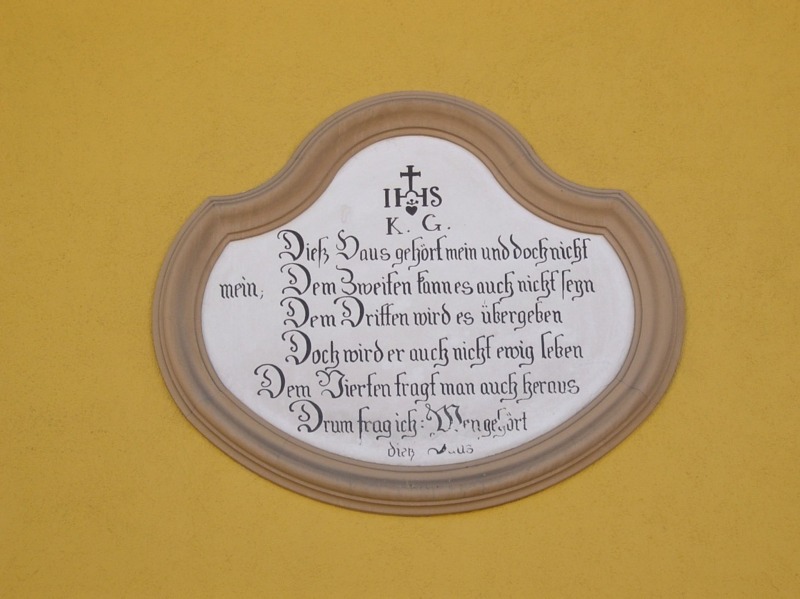 IHS
K. G.
Dieß Haus gehört mein und doch nicht
mein; Dem Zweiten kann es auch nicht seyn
Dem Dritten wird es übergeben
Doch wird er auch nicht ewig leben
Dem Vierten tragt man auch heraus
Drum frag ich: Wem gehört
dieß Haus